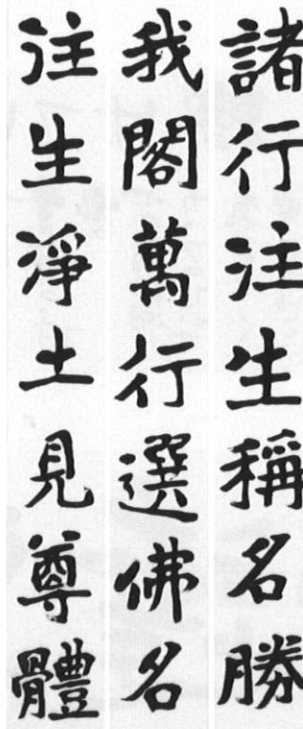 諸行注生稱名勝
我閣萬行選佛名
注生淨土見尊體